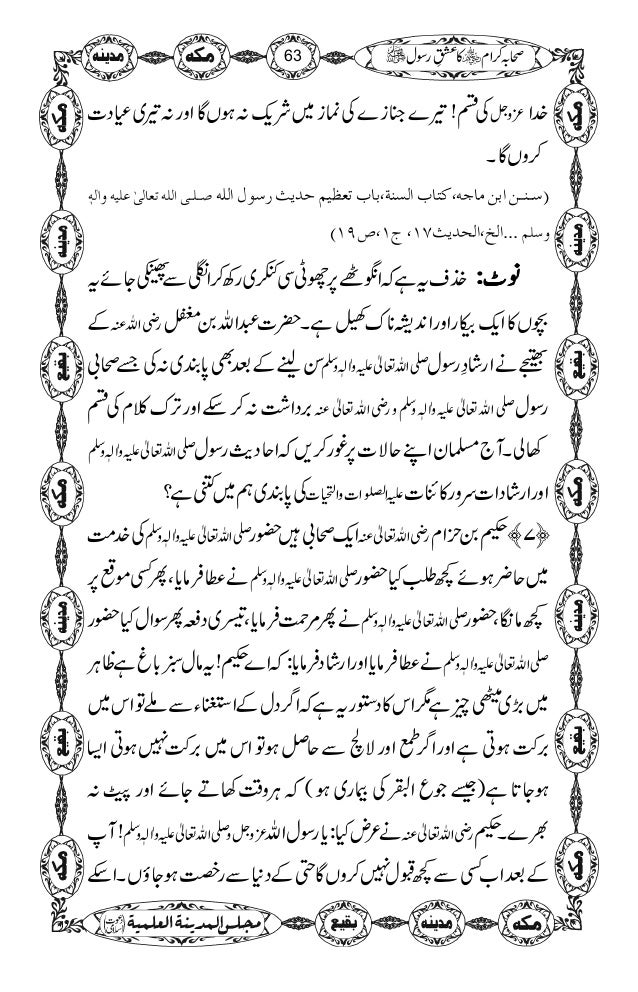 مدینہ مکہ 63 صحابہ کرام کا عشقِ رسول
خدا عزوجل کی قسم! تیرے جنازے کی نماز میں شریک نہ ہوں گا اور نہ تیری عیادت
کروں گا ۔
(سنن ابن ماجه،کتاب السنة،باب تعظيم حديث رسول الله صلی الله تعالیٰ علیه والهٖ
وسلم ...الخ،الحدیث۱۷، ج۱،ص۱۹)
نوٹ: خذف یہ ہے کہ انگوٹھے پر چھوٹی سی کنکری رکھ کر انگلی سے پھینکی جائے یہ
بچوں کا ایک بیکار اور اندیشہ ناک کھیل ہے۔ حضرت عبداللہ بن مغفل رضی اللہ عنہ کے
بھتیجے نے ارشادِ رسول صلی اللہ تعالیٰ علیہ والہٖ وسلم سن لینے کے بعد بھی پابندی نہ کی جسے صحابی
رسول صلی اللہ تعالیٰ علیہ والہٖ وسلم و رضی اللہ تعالیٰ عنہ برداشت نہ کر سکے اور ترک کلام کی قسم
کھالی۔ آج مسلمان اپنے حالات پر غور کریں کہ احادیث رسول صلی اللہ تعالیٰ علیہ والہٖ وسلم
اور ارشادات سرور کائنات علیہ الصلوات والتحیات کی پابندی ہم میں کتنی ہے؟
﴿۷﴾ حکیم بن حزام رضی اللہ تعالیٰ عنہ ایک صحابی ہیں حضور صلی اللہ تعالیٰ علیہ والہٖ وسلم کی خدمت
میں حاضر ہوئے کچھ طلب کیا حضور صلی اللہ تعالیٰ علیہ والہٖ وسلم نے عطا فرمایا، پھر کسی موقع پر
کچھ مانگا، حضور صلی اللہ تعالیٰ علیہ والہٖ وسلم نے پھر مرحمت فرمایا، تیسری دفعہ پھر سوال کیا حضور
صلی اللہ تعالیٰ علیہ والہٖ وسلم نے عطا فرمایا اور ارشاد فرمایا: کہ اے حکیم! یہ مال سبز باغ ہے ظاہر
میں بڑی میٹھی چیز ہے مگر اس کا دستور یہ ہے کہ اگر دل کے استغناء سے ملے تو اس میں
برکت ہوتی ہے اور اگر طمع اور لالچ سے حاصل ہو تو اس میں برکت نہیں ہوتی ایسا
ہوجاتا ہے (جیسے جوع البقر کی بیماری ہو ) کہ ہر وقت کھاتے جائے اور پیٹ نہ
بھرے۔ حکیم رضی اللہ تعالیٰ عنہ نے عرض کیا: یا رسول اللہ عزوجل وصلی اللہ تعالیٰ علیہ والہٖ وسلم! آپ
کے بعد اب کسی سے کچھ قبول نہیں کروں گا حتی کے دنیا سے رخصت ہوجاؤں۔ اسکے
مجلس المدینة العلمیة بقیع مدینہ مکہ